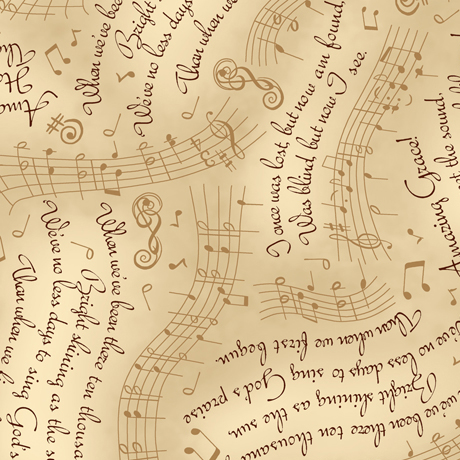 When we've bee
Bright
We've no less days
Than when w
I once was lost, but now am found,
Was blind, but now I see.
Amazing Grace!
t the sound,
When we've been there ten thousa
Bright shining as the s
We've no less days to sing God's
Than when we f
we've been there ten thousand
Bright shining as the sun.
ve no less days to sing God's praise
Than when we first begun.